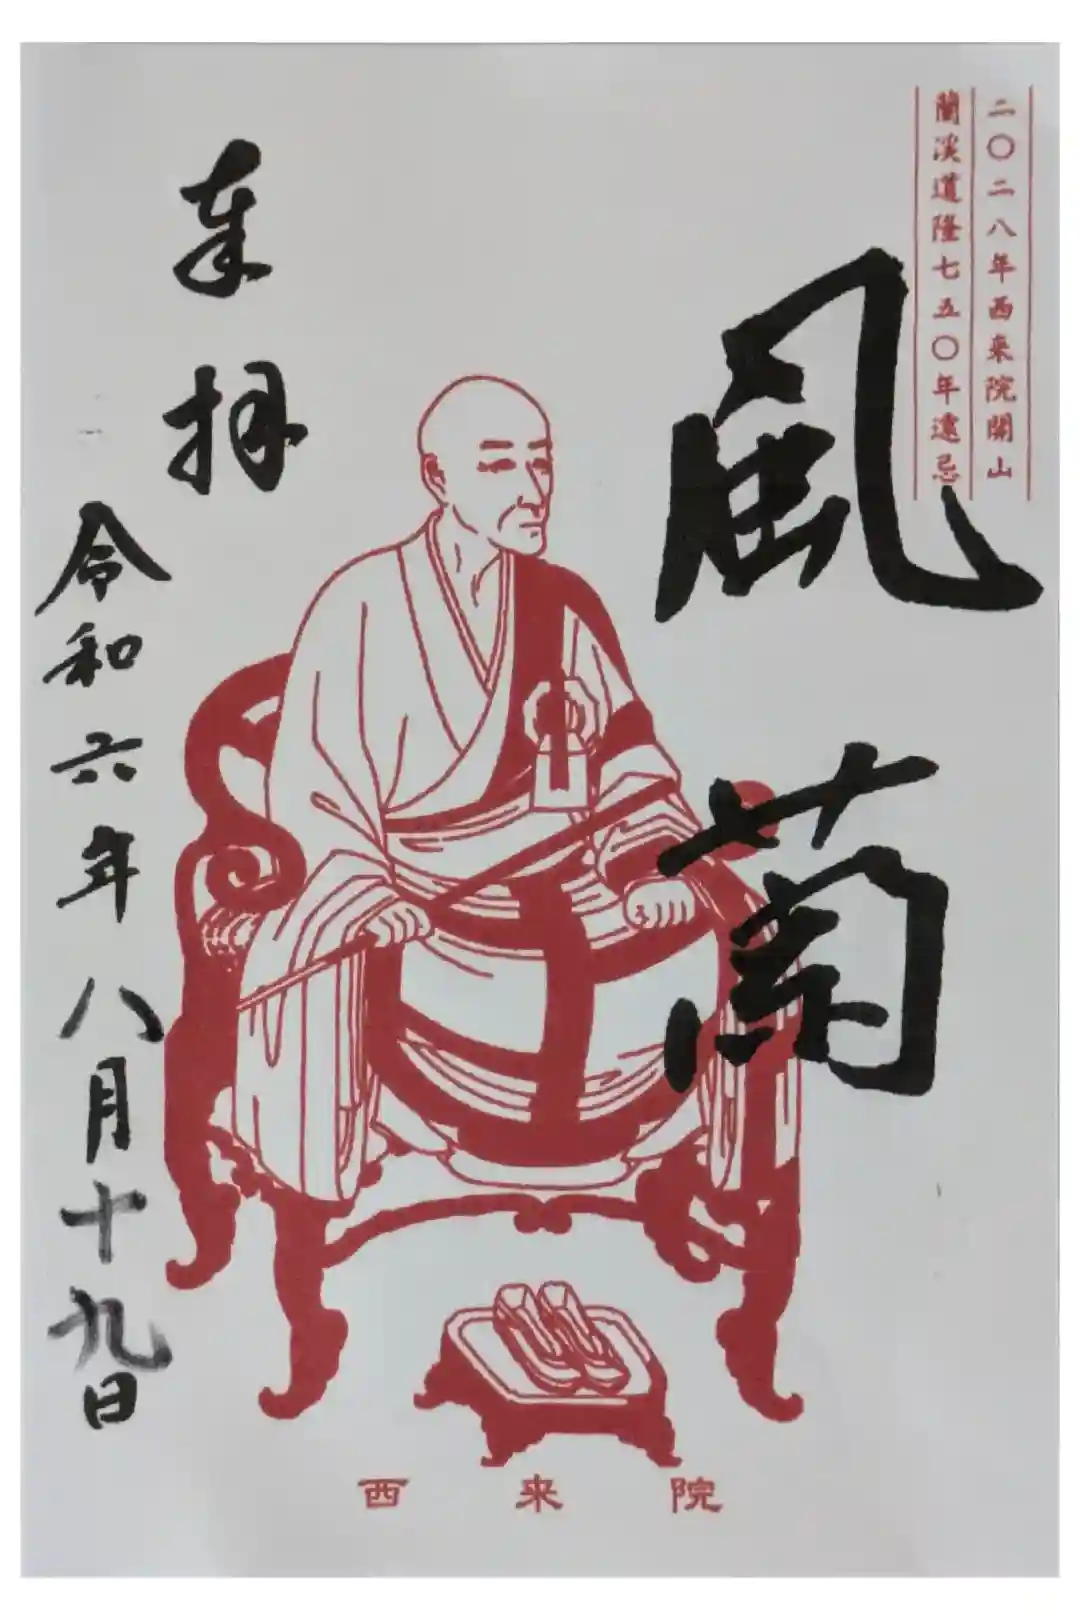 二〇二八年西来院開山
蘭溪道隆七五〇年遠忌
風蘭
奉拝
令和六年八月十九日
西来院